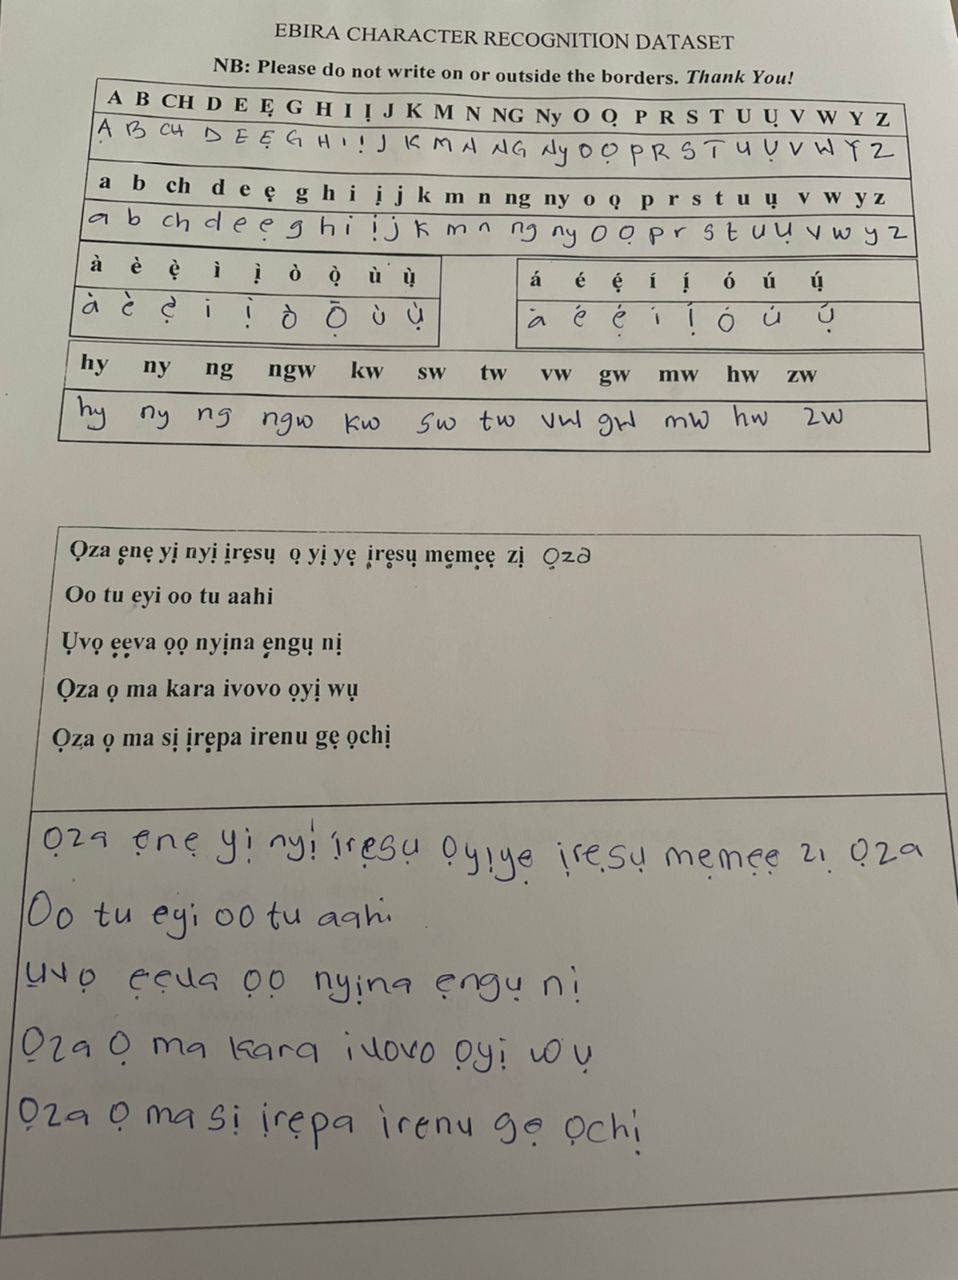 EBIRA CHARACTER RECOGNITION DATASET
NB: Please do not write on or outside the borders. Thank You!
A B CH D E Ẹ G H I Ị J K M N NG Ny O Ọ P R S T U Ụ V W Y Z
A B CH D E Ẹ G H I Ị J K M N NG Ny O Ọ P R S T U Ụ V W Y Z
a b ch d e ẹ g h i ị j k m n ng ny o ọ p r s t u ụ v w y z
a b ch d e ẹ g h i ị j k m n ng ny o ọ p r s t u ụ v w y z
à è ẹ̀ ì ị̀ ò ọ̀ ù ụ̀
à è ẹ̀ ì ị̀ ò ọ̄ ù ụ̀
á é ẹ́ í ị́ ó ú ụ́
á é ẹ́ í ị́ ó ú ụ́
hy ny ng ngw kw sw tw vw gw mw hw zw
hy ny ng ngw kw sw tw vw gw mw hw zw
Ọza ẹnẹ yị nyị ịrẹsụ ọ yị yẹ ịrẹsụ mẹmẹẹ zị ọza
Oo tu eyi oo tu aahi
Ụvọ ẹẹva ọọ nyịna ẹngụ nị
Ọza ọ ma kara ivovo ọyị wụ
Ọza ọ ma sị ịrẹpa irenu gẹ ọchị
Ọza ẹnẹ yị nyị ịrẹsụ ọyịyẹ ịrẹsụ mẹmẹẹ zị ọza
Oo tu eyi oo tu aahi
Ụvọ ẹẹva ọọ nyịna ẹngụ nị
Ọza ọ ma kara ivovo ọyị wụ
Ọza ọ ma sị ịrẹpa irenu gẹ ọchị